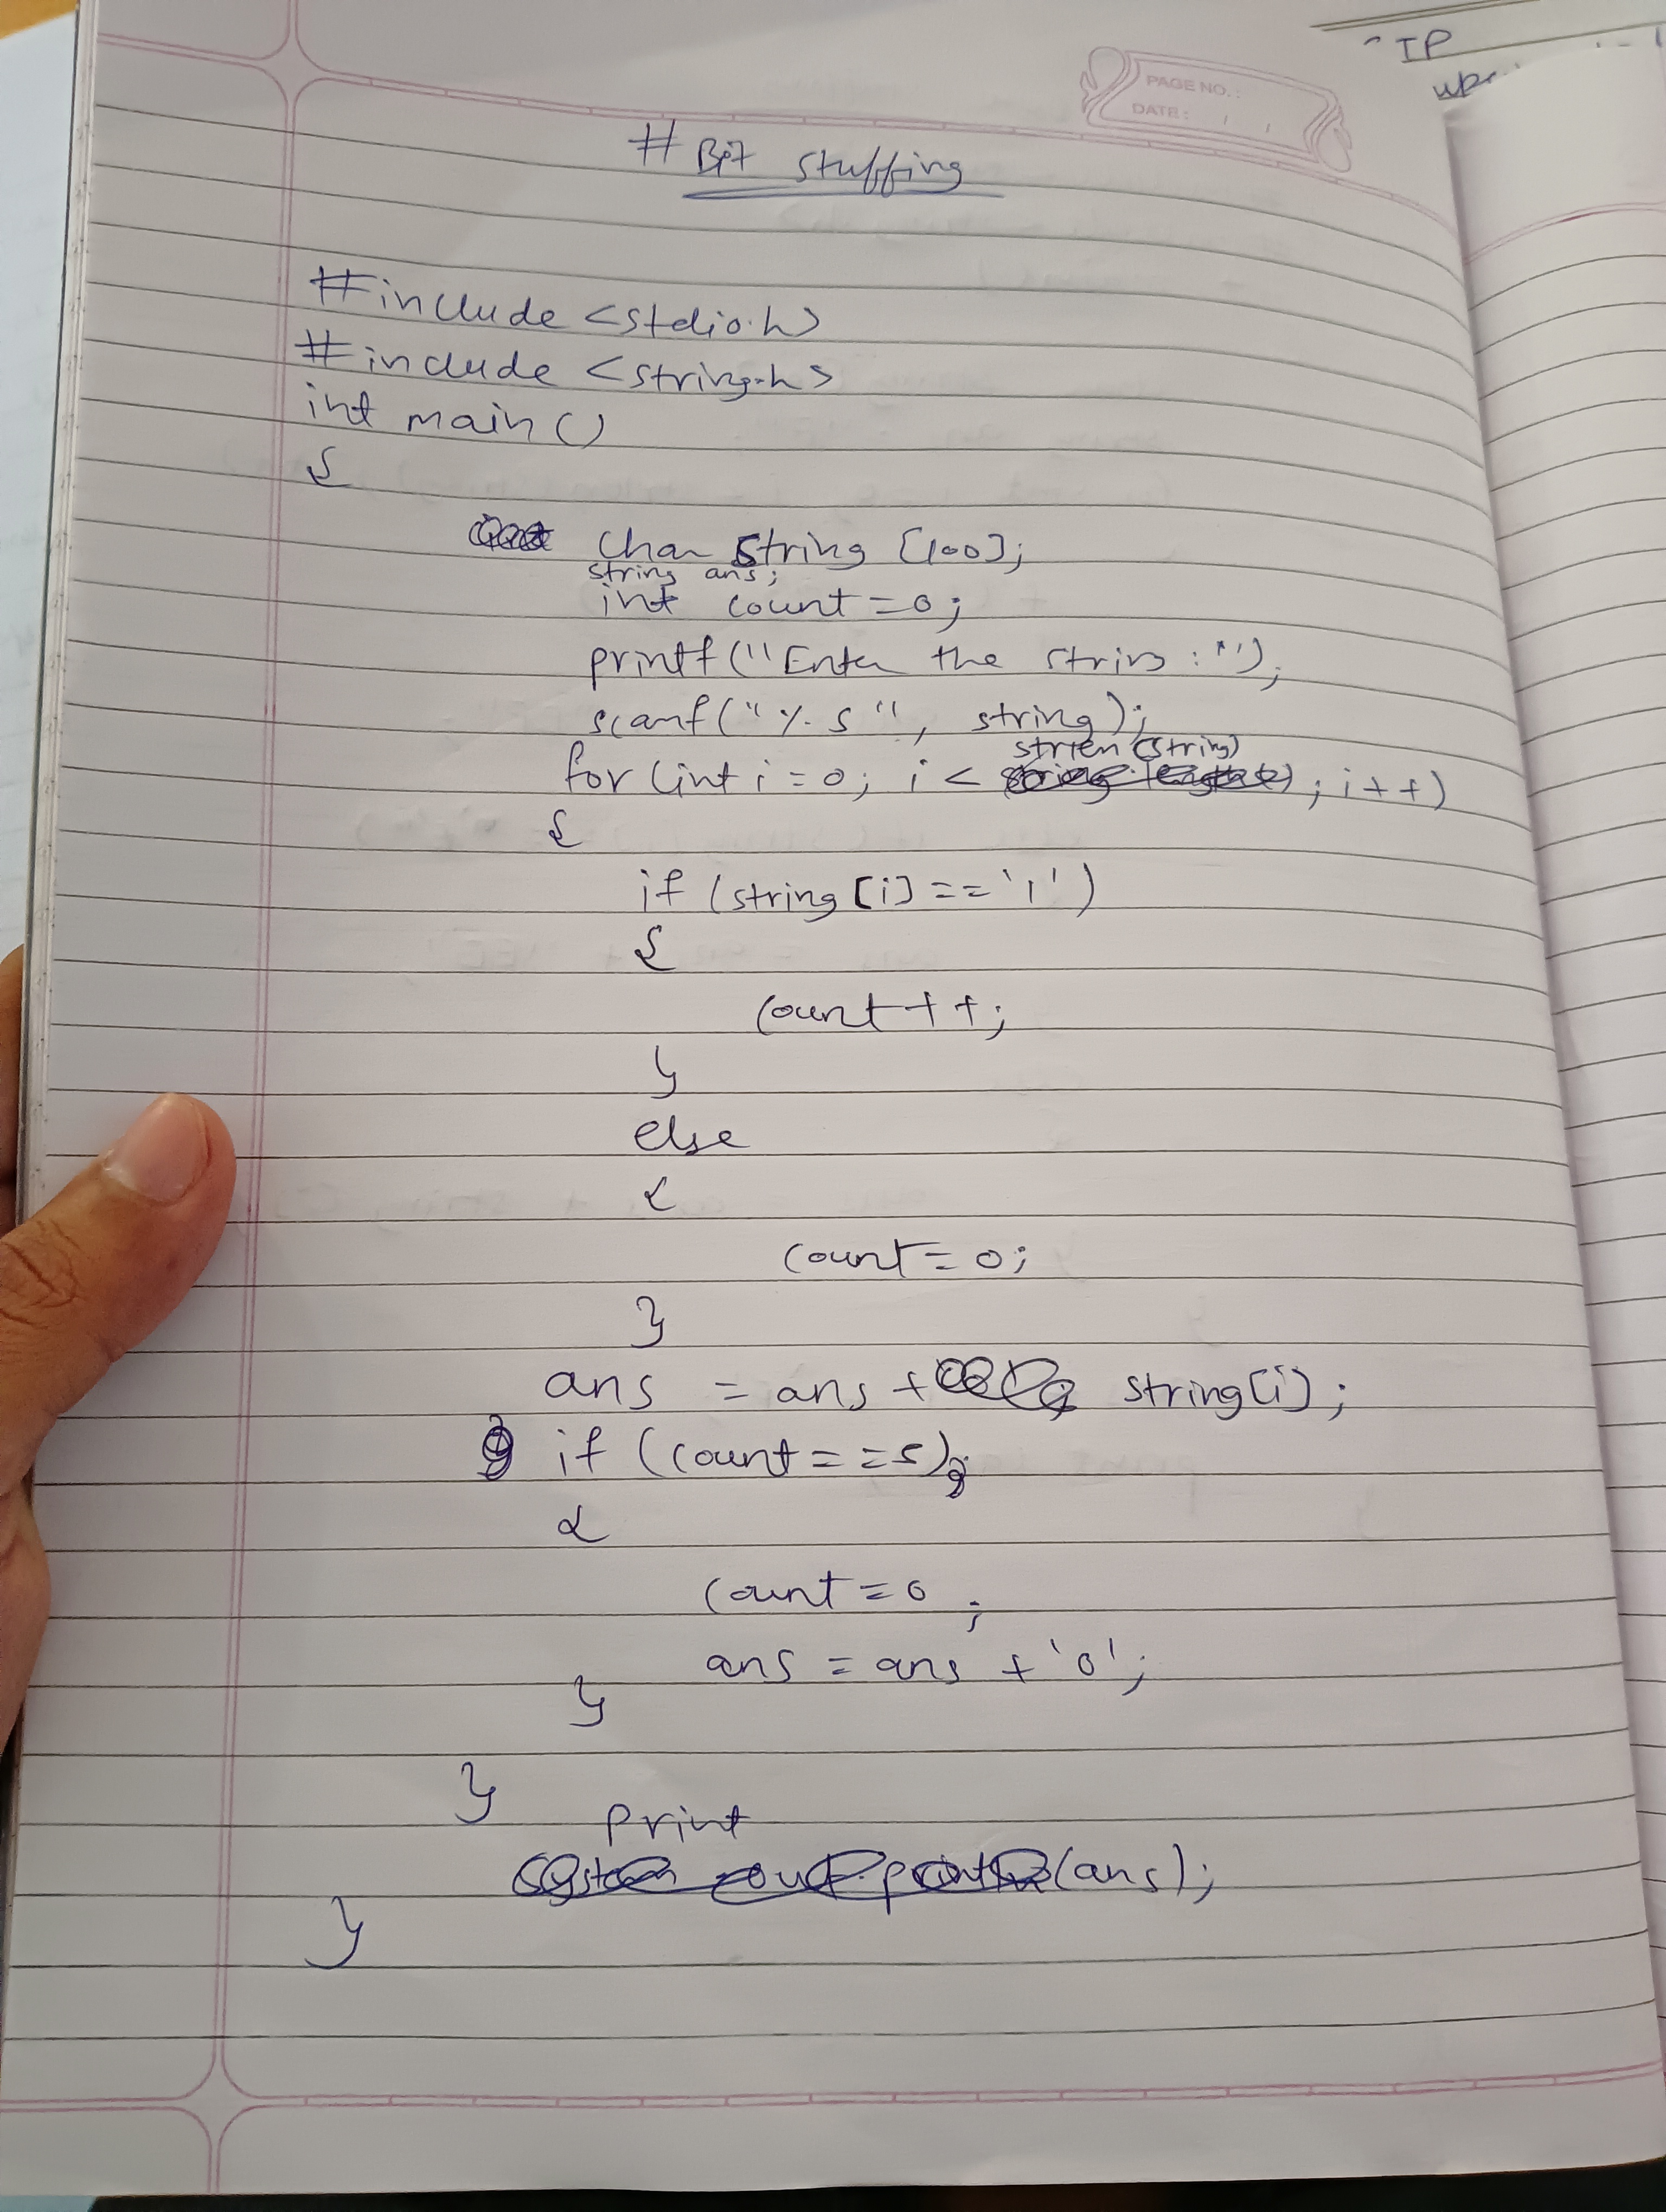 IP
PAGE NO.:
DATE: / /
# Bit stuffing
#include <stdio.h>
#include <string.h>
int main()
{
char string [100];
string ans;
int count = 0;
printf("Enter the string : ");
scanf("%s", string);
for (int i = 0; i < strlen(string) ; i++)
{
if (string[i] == '1')
{
count++;
}
else
{
count = 0;
}
ans = ans + string[i];
if (count == 5)
{
count = 0;
ans = ans + '0';
}
}
print
(ans);
}